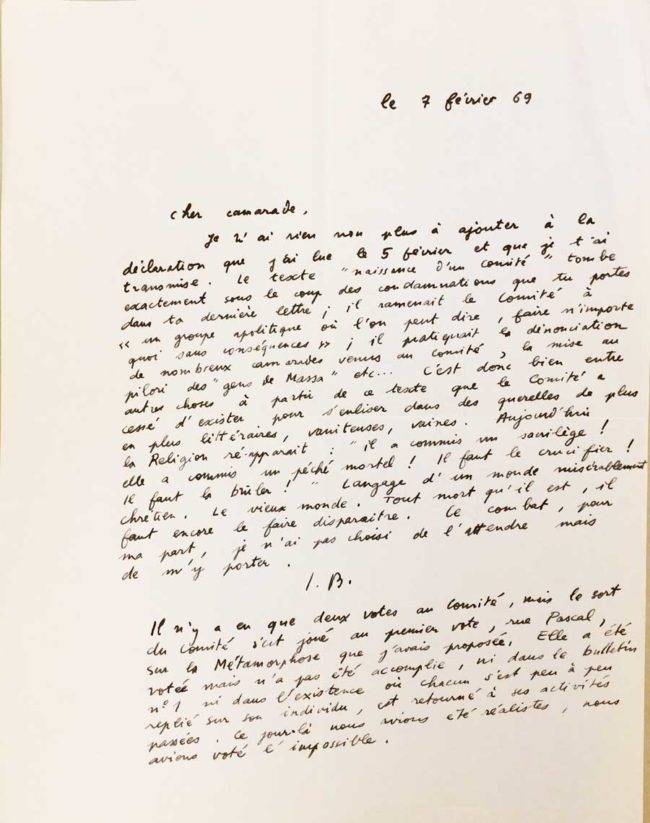 le 7 février 69
Cher camarade,
Je n'ai rien non plus à ajouter à la
déclaration que j'ai lue le 5 février et que je t'ai
transmise. Le texte "naissance d'un comité" tombe
exactement sous le coup des condamnations que tu portes
dans ta dernière lettre ; il ramenait le Comité à
« un groupe apolitique où l'on peut dire, faire n'importe
quoi sans conséquences » ; il pratiquait la dénonciation
de nombreux camarades venus au comité, la mise au
pilori des "gens de Massa" etc... C'est donc bien entre
autres choses à partir de ce texte que le Comité a
cessé d'exister pour s'enliser dans des querelles de plus
en plus littéraires, vaniteuses, vaines. Aujourd'hui
la Religion réapparait : "il a commis un sacrilège !
elle a commis un péché mortel ! Il faut le crucifier !
Il faut la brûler !" Langage d'un monde misérablement
chrétien. Le vieux monde. Tout mort qu'il est, il
faut encore le faire disparaitre. Le combat, pour
ma part, je n'ai pas choisi de l'attendre mais
de m'y porter.
J. B.
Il n'y a eu que deux votes au Comité, mais le sort
du Comité s'est joué au premier vote, rue Pascal,
sur la Métamorphose que j'avais proposée. Elle a été
votée mais n'a pas été accomplie, ni dans le bulletin
n°1 ni dans l'existence où chacun s'est peu à peu
replié sur son individu, est retourné à ses activités
passées. Ce jour-là nous avions été réalistes, nous
avions voté l'impossible.